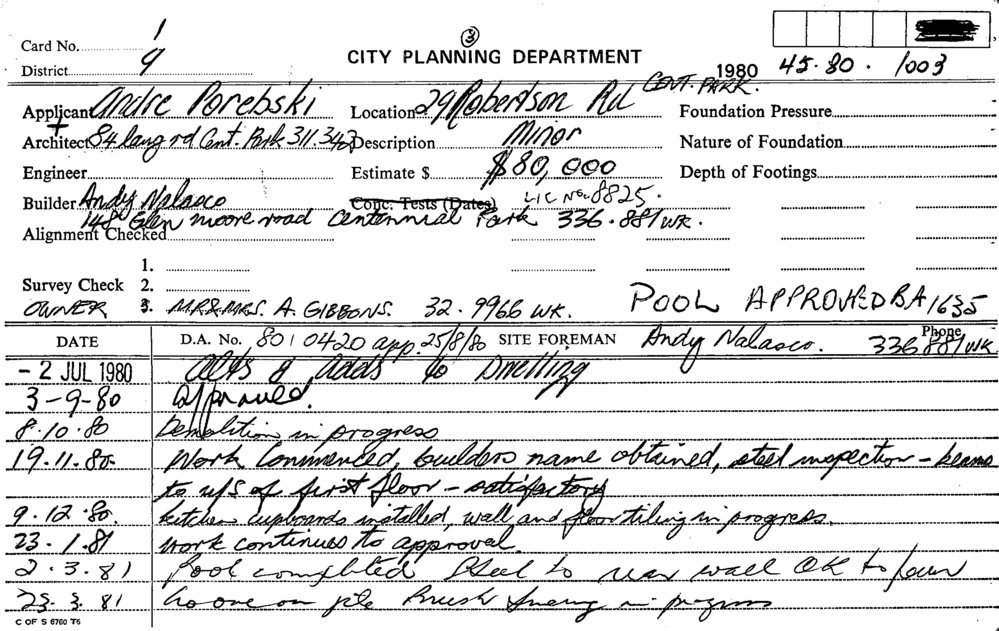 3
Card No. 1
District 9
CITY PLANNING DEPARTMENT
1980 45.80. 1003
Applicant Andre Porebski Location 29 Robertson Rd CENT. PARK. Foundation Pressure
+
Architect 84 Lang rd Cent. Park 311.342 Description Minor Nature of Foundation
Engineer Estimate $ $80,000 Depth of Footings
Builder Andy Nalasco Conc. Tests (Dates) LIC No. 8825.
148 Glenmoore road Centennial Park 336.881 WK.
Alignment Checked
1.
Survey Check 2.
OWNER 3. MR & MRS. A. GIBBONS. 32.9966 WK. POOL APPROVED BA 1635
DATE D.A. No. 801 0420 app. 25/8/80 SITE FOREMAN Andy Nalasco. Phone 336 881 WK
- 2 JUL 1980 Alts & Adds to Dwelling
3-9-80 Approved.
8.10.80 Demolition in progress
19.11.80. Work Commenced, builders name obtained, steel inspection - beams
to u/s of first floor - satisfactory
9.12.80. kitchen cupboards installed, wall and floor tiling in progress.
23.1.81 work continues to approval.
2.3.81 Pool completed Steel to rear wall OK to pour
23.3.81 No one on site Brush in progress
C OF S 6760 T6